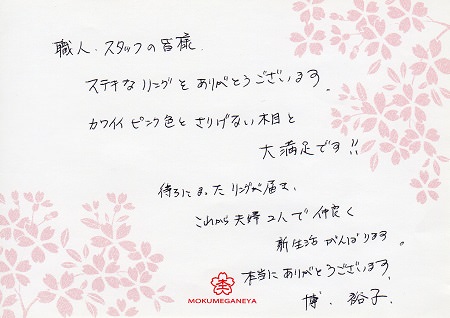 職人、スタッフの皆様
ステキなリングをありがとうございます。
カワイイピンク色とさりげない木目と
大満足です!!
待ちに待ったリングが届き、
これから夫婦2人で仲良く
新生活がんばります。
本当にありがとうございます。
博、裕子.
MOKUMEGANEYA